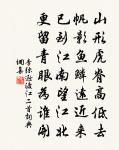 山形虎脊高低去
帆影魚鱗遠近來
已到江南望江北
更留青眼為誰開
渡江二首 詞典
網集